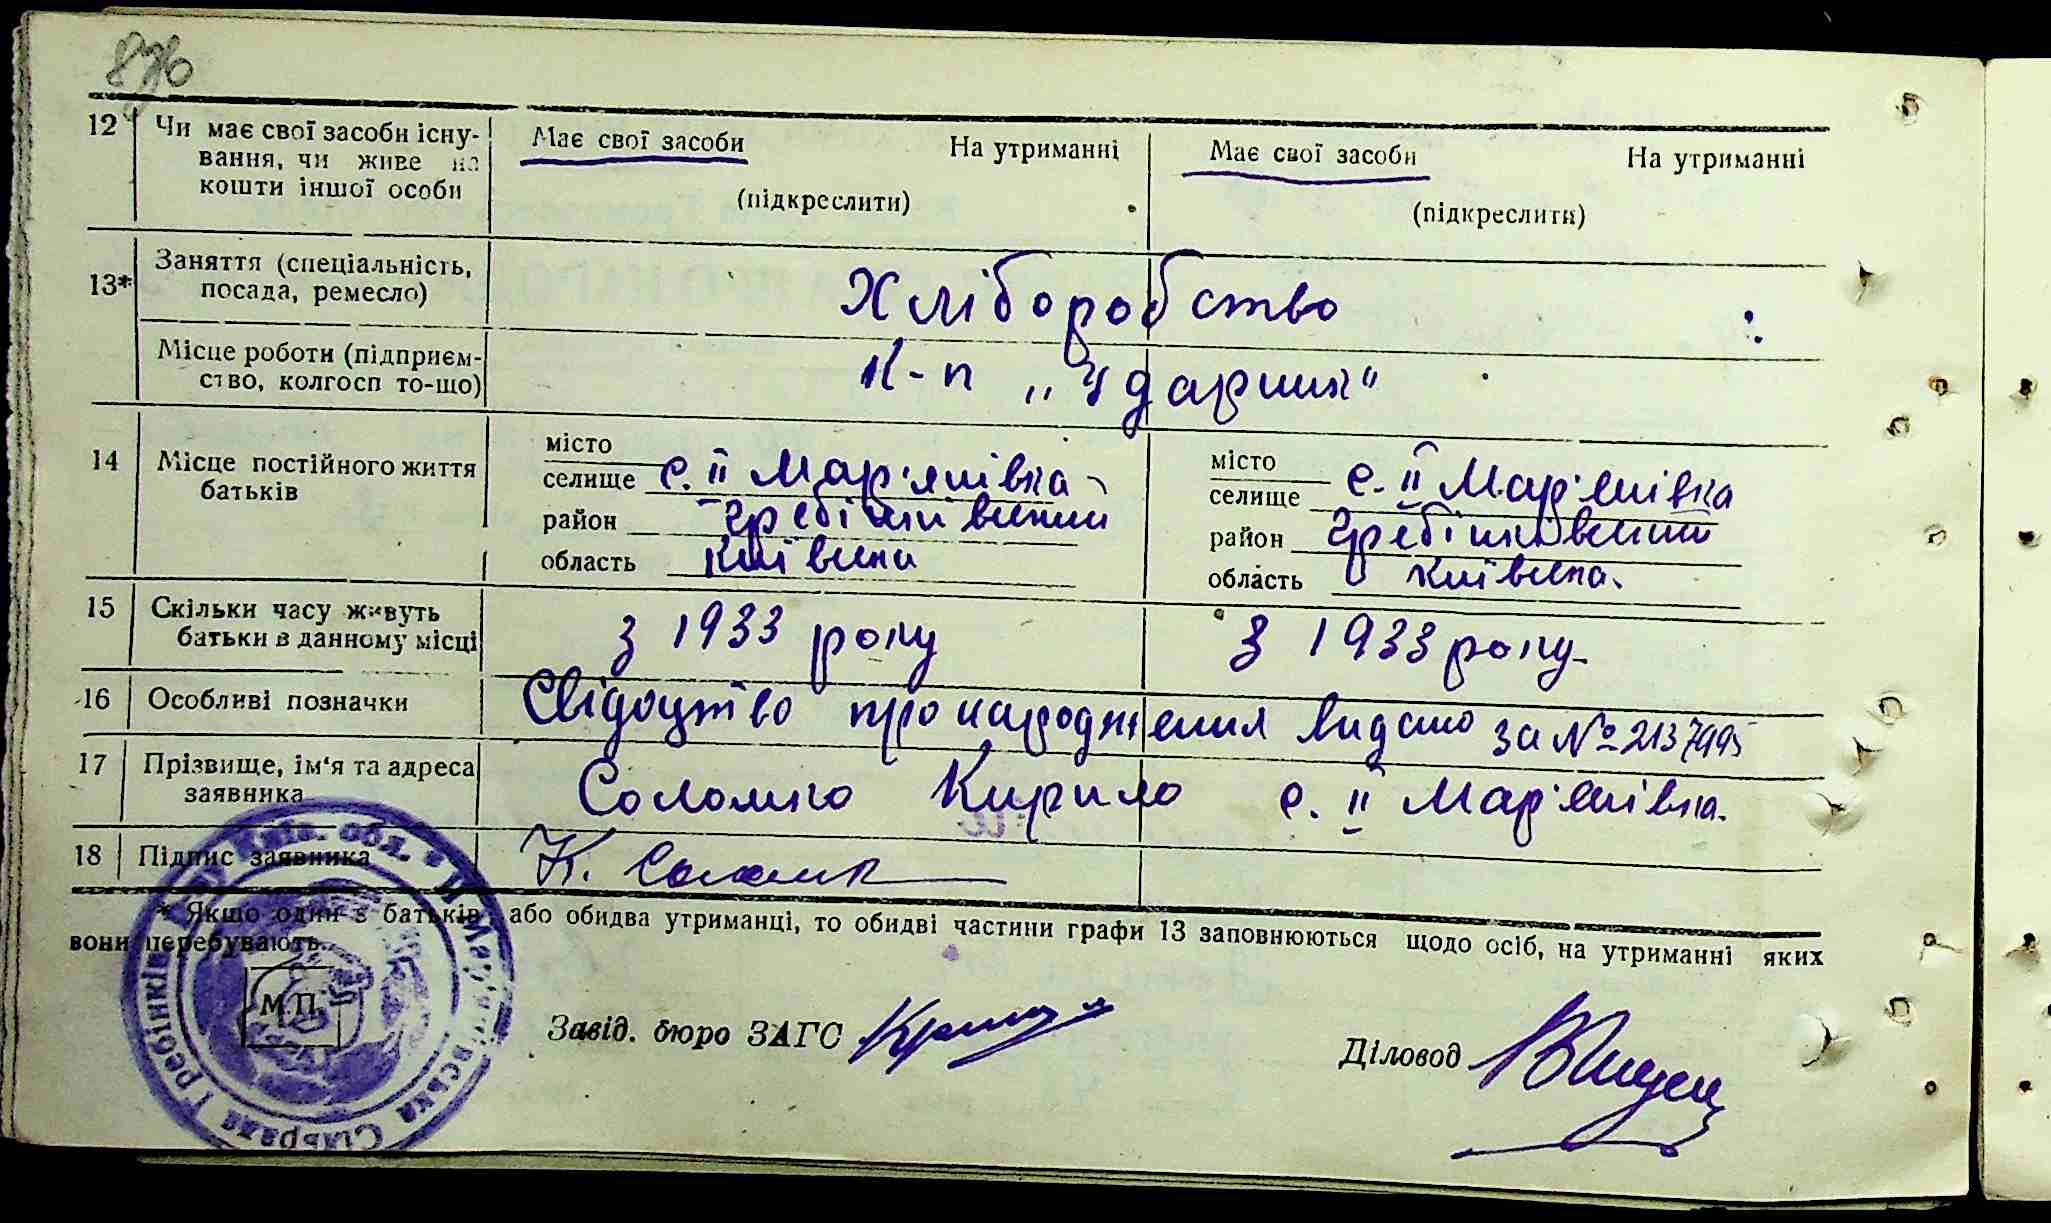 876
12 Чи має свої засоби існу- Має свої засоби На утриманні Має свої засоби На утриманні
вання, чи живе на
кошти іншої особи (підкреслити) (підкреслити)
13* Заняття (спеціальність, Хліборобство
посада, ремесло)
Місце роботи (підприєм- К-п „Ударник"
ство, колгосп то-що)
14 Місце постійного життя місто місто
батьків селище с. ІІ Мар'янівка селище с. ІІ Мар'янівка
район Гребінківський район Гребінківський
область Київська область Київська.
15 Скільки часу живуть З 1933 року З 1933 року.
батьки в данному місці
16 Особливі позначки Свідоцтво про народження видано за № 2137995
17 Прізвище, ім'я та адреса Соломко Кирило с. ІІ Мар'янівка.
заявника
18 Підпис заявника К. Соломк
* Якщо один з батьків, або обидва утриманці, то обидві частини графи 13 заповнюються щодо осіб, на утриманні яких
вони перебувають.
М.П.
Завід. бюро ЗАГС
Діловод
Сільрада Гребінків. р-ну Київ. обл. * ІІ Мар'янівська